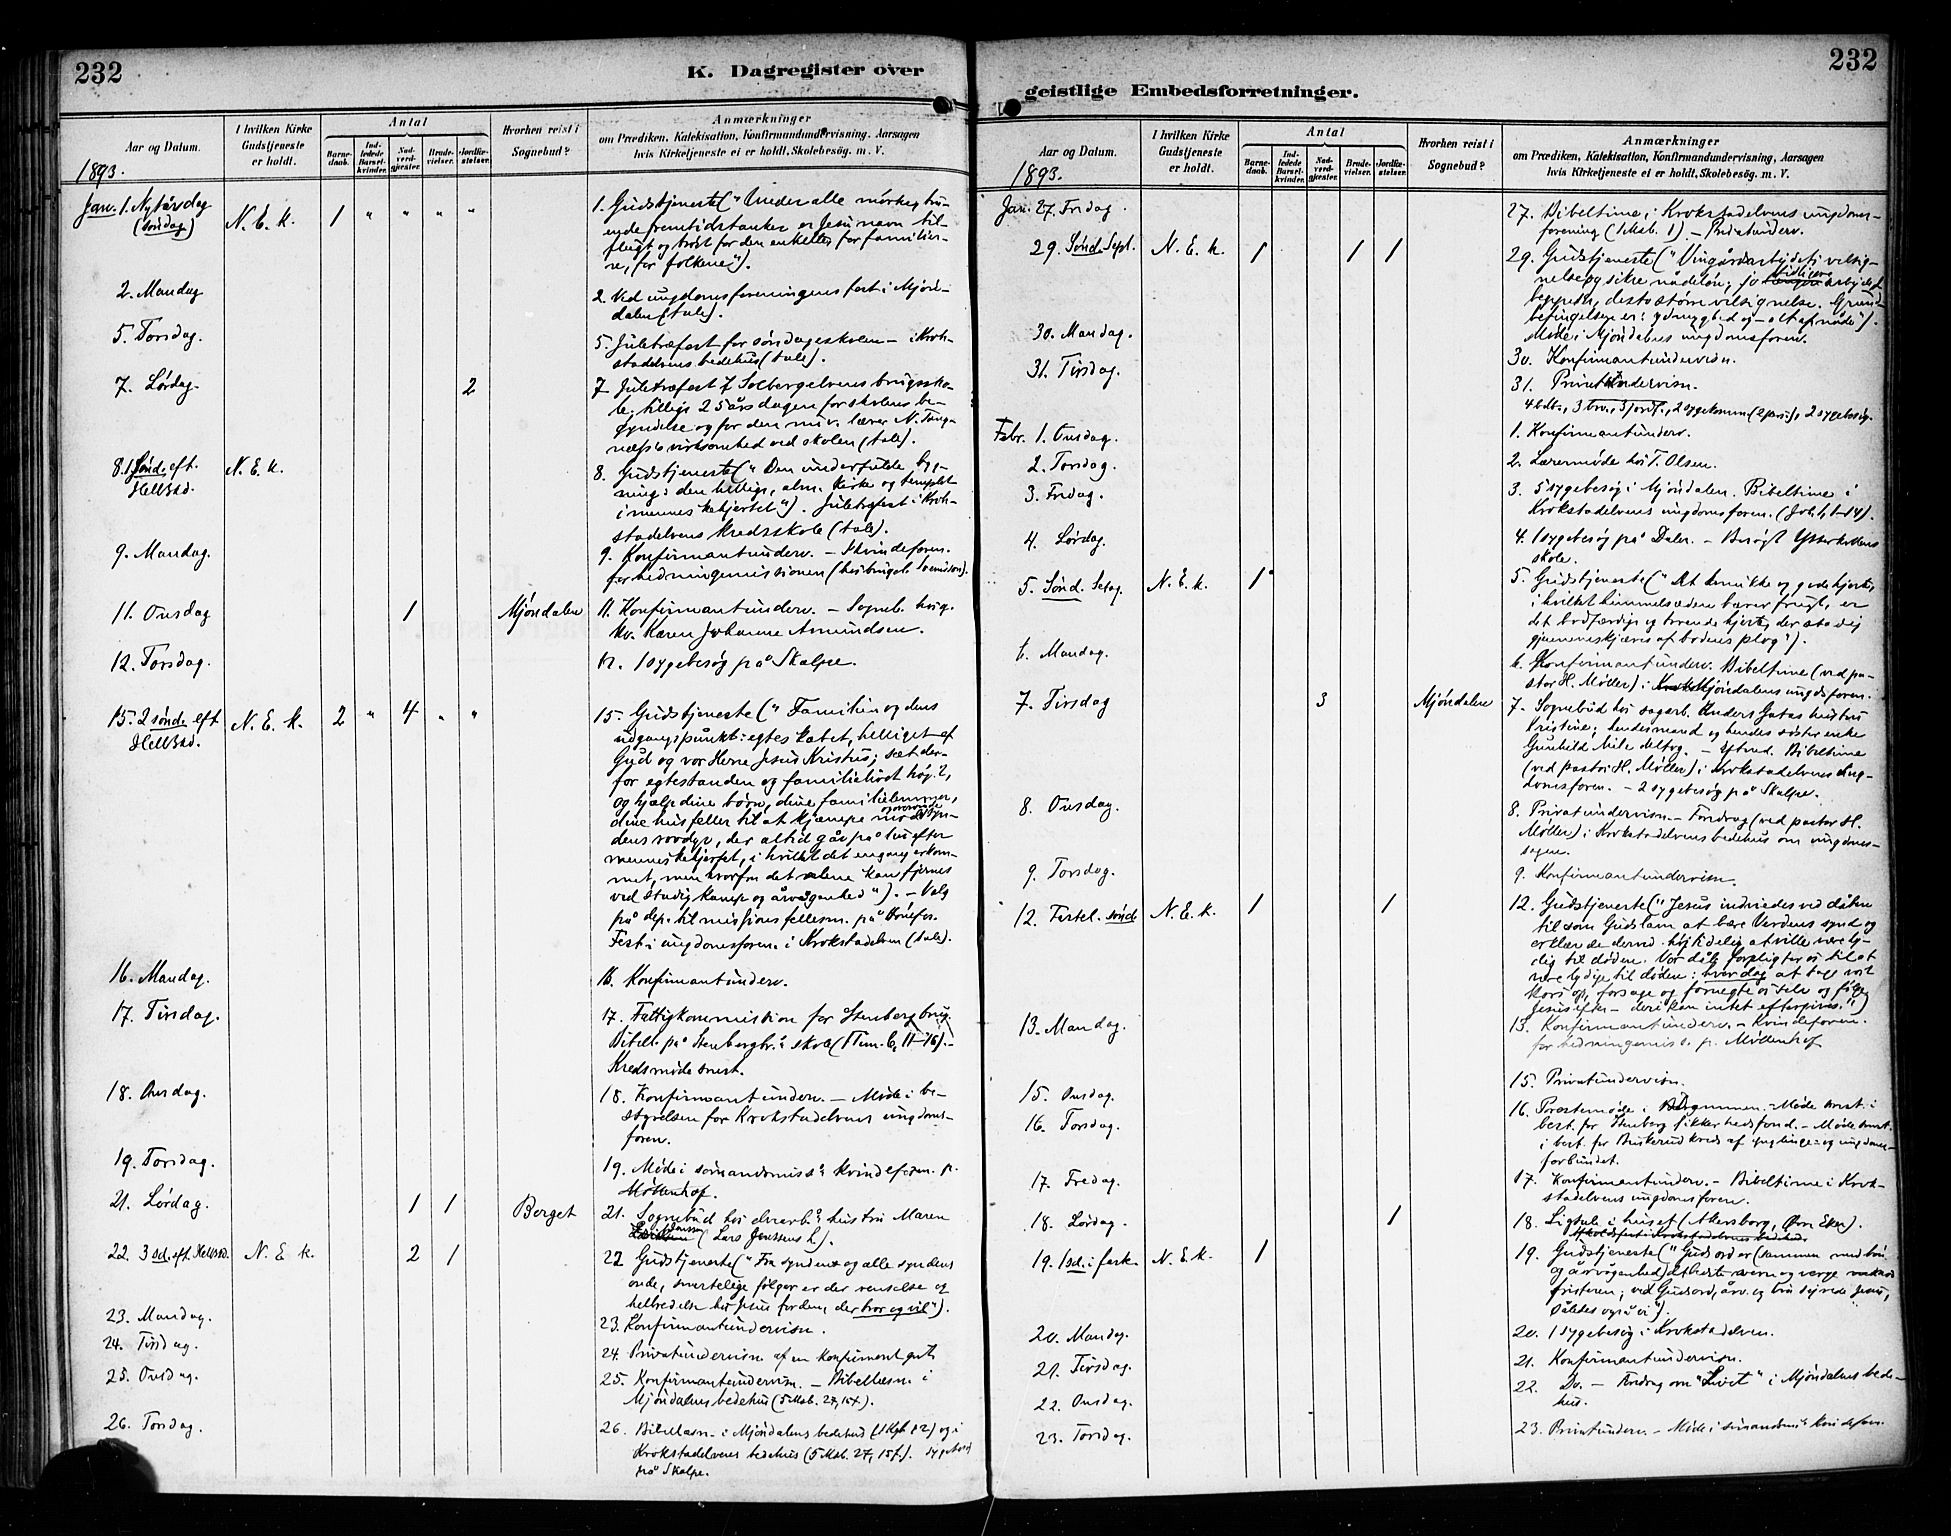 232
K. Dagregister over
Aar og Datum.
I hvilken Kirke Gudstjeneste er holdt.
Antal
Barnedaab.
Indledede Barselkvinder.
Nadverdgjester.
Brudevielser.
Jordfæstelser.
Hvorhen reist i Sognebud?
Anmærkninger
om Prædiken, Katekisation, Konfirmandundervisning, Aarsagen
hvis Kirketjeneste ei er holdt, Skolebesög. m. V.
1893.
Jan. 1. Nytårsdag
(søndag) N. E. k. 1 " " " "
1. Gudstjeneste ("Under alle mørke, tru-
ende fremtidstanker er Jesu navn til-
flugt og trøst for den enkelte, for familier-
ne, for folkene").
2. Mandag
2. Ved ungdomsforeningens fest i Mjøn-
dalen (tale).
5. Torsdag.
5. Juletræfest for søndagsskolen – i Krok-
stadelvens bedehus (tale).
7. Lørdag. 2
7. Juletræfest f. Solbergelvens brugssko-
le, tillige 25 årsdagen for skolens be-
gyndelse og for den nuv. lærer N. Tang-
virksomhed ved skolen (tale).
8. 1 Sønd. eft. N. E. k.
Hell3kd.
8. Gudstjeneste ("Den underfulde byg-
ning: den hellige, alm. kirke og templet
i menneskehjertet"). Juletræfest i Krok-
stadelvens kredsskole (tale).
9. Mandag.
9. Konfirmantunderv. – Kvindeforen.
for hedningemissionen (hos brugsb. Svendsen).
11. Onsdag 1 Mjøndalen
11. Konfirmantunderv. – Sogneb. hos g.
kv. Karen Johanne Amundsen.
12. Torsdag.
12. 1 sygebesøg på Skalpe.
15. 2 sønd. eft. N. E. k. 2 " 4 " "
Hell3kd.
15. Gudstjeneste ("Familien og dens
udgangspunkt: egteskabet, helliget af
Gud og vor Herre Jesus Kristus; sæt der-
for egtestanden og familielivet højt,
og hjælp dine børn, dine familielemmer,
dine husfeller til at kjæmpe mod syn-
dens rovdyr, der altid går på lur efter
menneskehjertet, i hvilket det engang er kom-
met, men hvorfra det alene kan fjernes
ved stadig kamp og årvågenhed"). – Valg
på dep. til missionsfællesm. på Hønefos.
Fest i ungdomsforen. i Krokstadelven (tale).
16. Mandag.
16. Konfirmantunderv.
17. Tirsdag.
17. Fattigkommission for Stenberg brug.
Bibell. på Stenbergbr.s skole (1 Tim. 6, 11–16). –
Kredsmøde smst.
18. Onsdag.
18. Konfirmantunderv. – Møde i be-
styrelsen for Krokstadelvens ungdoms-
foren.
19. Torsdag.
19. Møde i sømandsmiss.s kvindeforen. p.
Møllenhof.
21. Lørdag. 1 1 Berget
21. Sognebud hos elvearb.s hustru Maren
Jensen (Lars Jenssens h.).
22. 3 sd. eft. Hell3kd. N. E. k. 2 1
22. Gudstjeneste ("Fra syndens og alle syndens
onde, smertelige følger er der renselse og
helbredelse hos Jesus for dem, der tror og vil").
23. Mandag.
23. Konfirmantundervisn.
24. Tirsdag.
24. Privatundervisn. af en konfirmantgut.
25. Onsdag.
25. Konfirmantundervisn. – Bibellæsn. i
Mjøndalens bedehus (5 Msb. 27, 15f.).
26. Torsdag.
26. Bibellæsn. i Mjøndalens bedehus (1 Kgb. 12) og i
Krokstadelvens bedehus (5 Msb. 27, 15f.). sygebesøg
på Skalpe.
232
geistlige Embedsforretninger.
Aar og Datum.
I hvilken Kirke Gudstjeneste er holdt.
Antal
Barnedaab.
Indledede Barselkvinder.
Nadverdgjester.
Brudevielser.
Jordfæstelser.
Hvorhen reist i Sognebud?
Anmærkninger
om Prædiken, Katekisation, Konfirmandundervisning, Aarsagen
hvis Kirketjeneste ei er holdt, Skolebesög. m. V.
1893.
Jan. 27. Fredag.
27. Bibeltime i Krokstadelvens ungdoms-
forening (1 Msb. 1) – Privatunderv.
29. Sønd. Sept. N. E. k. 1 1 1
29. Gudstjeneste ("Vingårdsarbejdets velsig-
nelse og sikre nådeløn; jo tidligere arbejdet
begyndes, desto større velsignelse. Grund-
betingelsen er: ydmyghed og – alt af nåde").
Møde i Mjøndalens ungdomsforen.
30. Mandag.
30. Konfirmantundervisn.
31. Tirsdag.
31. Privatundervisn.
4 bdb., 3 brv., 3 jordf., 2 sygekomm. (2 pers.), 2 sygebesøg.
Febr. 1. Onsdag.
1. Konfirmantunderv.
2. Torsdag.
2. Lærermøde hos T. Olsen.
3. Fredag.
3. 5 sygebesøg i Mjøndalen. Bibeltime i
Krokstadelvens ungdomsforen. (Joh. 1, 1–14).
4. Lørdag.
4. 1 sygebesøg på Dalen. – Besøgt Ytterkollens
skole.
5. Sønd. Sexag. N. E. k. 1
5. Gudstjeneste ("Det smukke og gode hjerte,
i hvilket himmelsæden bærer frugt, er
det bodfærdige og troende hjerte, der stadig
gjennemskjæres af bodens plog").
6. Mandag.
6. Konfirmantunderv. Bibeltime (ved pa-
stor H. Møller) i Mjøndalens ungdsforen.
7. Tirsdag 3 Mjøndalen
7. Sognebud hos sagarb. Anders Gatas hustru
Kristine; hendes mand og hendes søster enke
Gunhild Nile deltog. – Bibeltime
(ved pastor H. Møller) i Krokstadelvens ung-
domsforen. – 2 sygebesøg på Skalpe.
8. Onsdag.
8. Privatundervisn. – Foredrag (ved pastor H.
Møller) i Krokstadelvens bedehus om ungdoms-
sagen.
9. Torsdag.
9. Konfirmantundervisn.
12. Fastel. sønd. N. E. k. 1 1
12. Gudstjeneste ("Jesus indviedes ved dåben
til som Guds lam at bære Verdens synd og
erklærede derved højtidelig at ville være ly-
dig til døden. Vor dåb forpligter os til at
være lydige til døden: hver dag at tage vort
kors op, forsage og fornegte os selv og følge
Jesus efter – deri kan intet eftergives.")
13. Mandag.
13. Konfirmantunderv. – Kvindeforen.
for hedningemiss. p. Møllenhof
15. Onsdag.
15. Privatundervisn.
16. Torsdag.
16. Præstemøde i Drammen. – Møde smst. i
best. for Stenberg sikkerhedsfond. – Møde smst.
i best. for Buskerud kreds af ynglinge- og ungdoms-
forbundet.
17. Fredag.
17. Konfirmantunderv. – Bibeltime i Krok-
stadelvens ungdomsforen.
18. Lørdag. 1
18. Ligtale i huset (Akersborg, Øvre Eker).
19. 1 sd. i faste N. E. k. 1
19. Gudstjeneste ("Guds ord er (sammen med bøn
og årvågenhed) det bedste værn og verge mod
fristeren; ved Guds ord, årv. og bøn sejrede Jesus,
således også vi").
20. Mandag.
20. 1 sygebesøg i Krokstadelven.
21. Tirsdag.
21. Konfirmantundervisn.
22. Onsdag.
22. Do. – Foredrag om "Livet" i Mjøndalens bede-
hus.
23. Torsdag.
23. Privatunderv. – Møde i sømandsmis. kvindeforen.